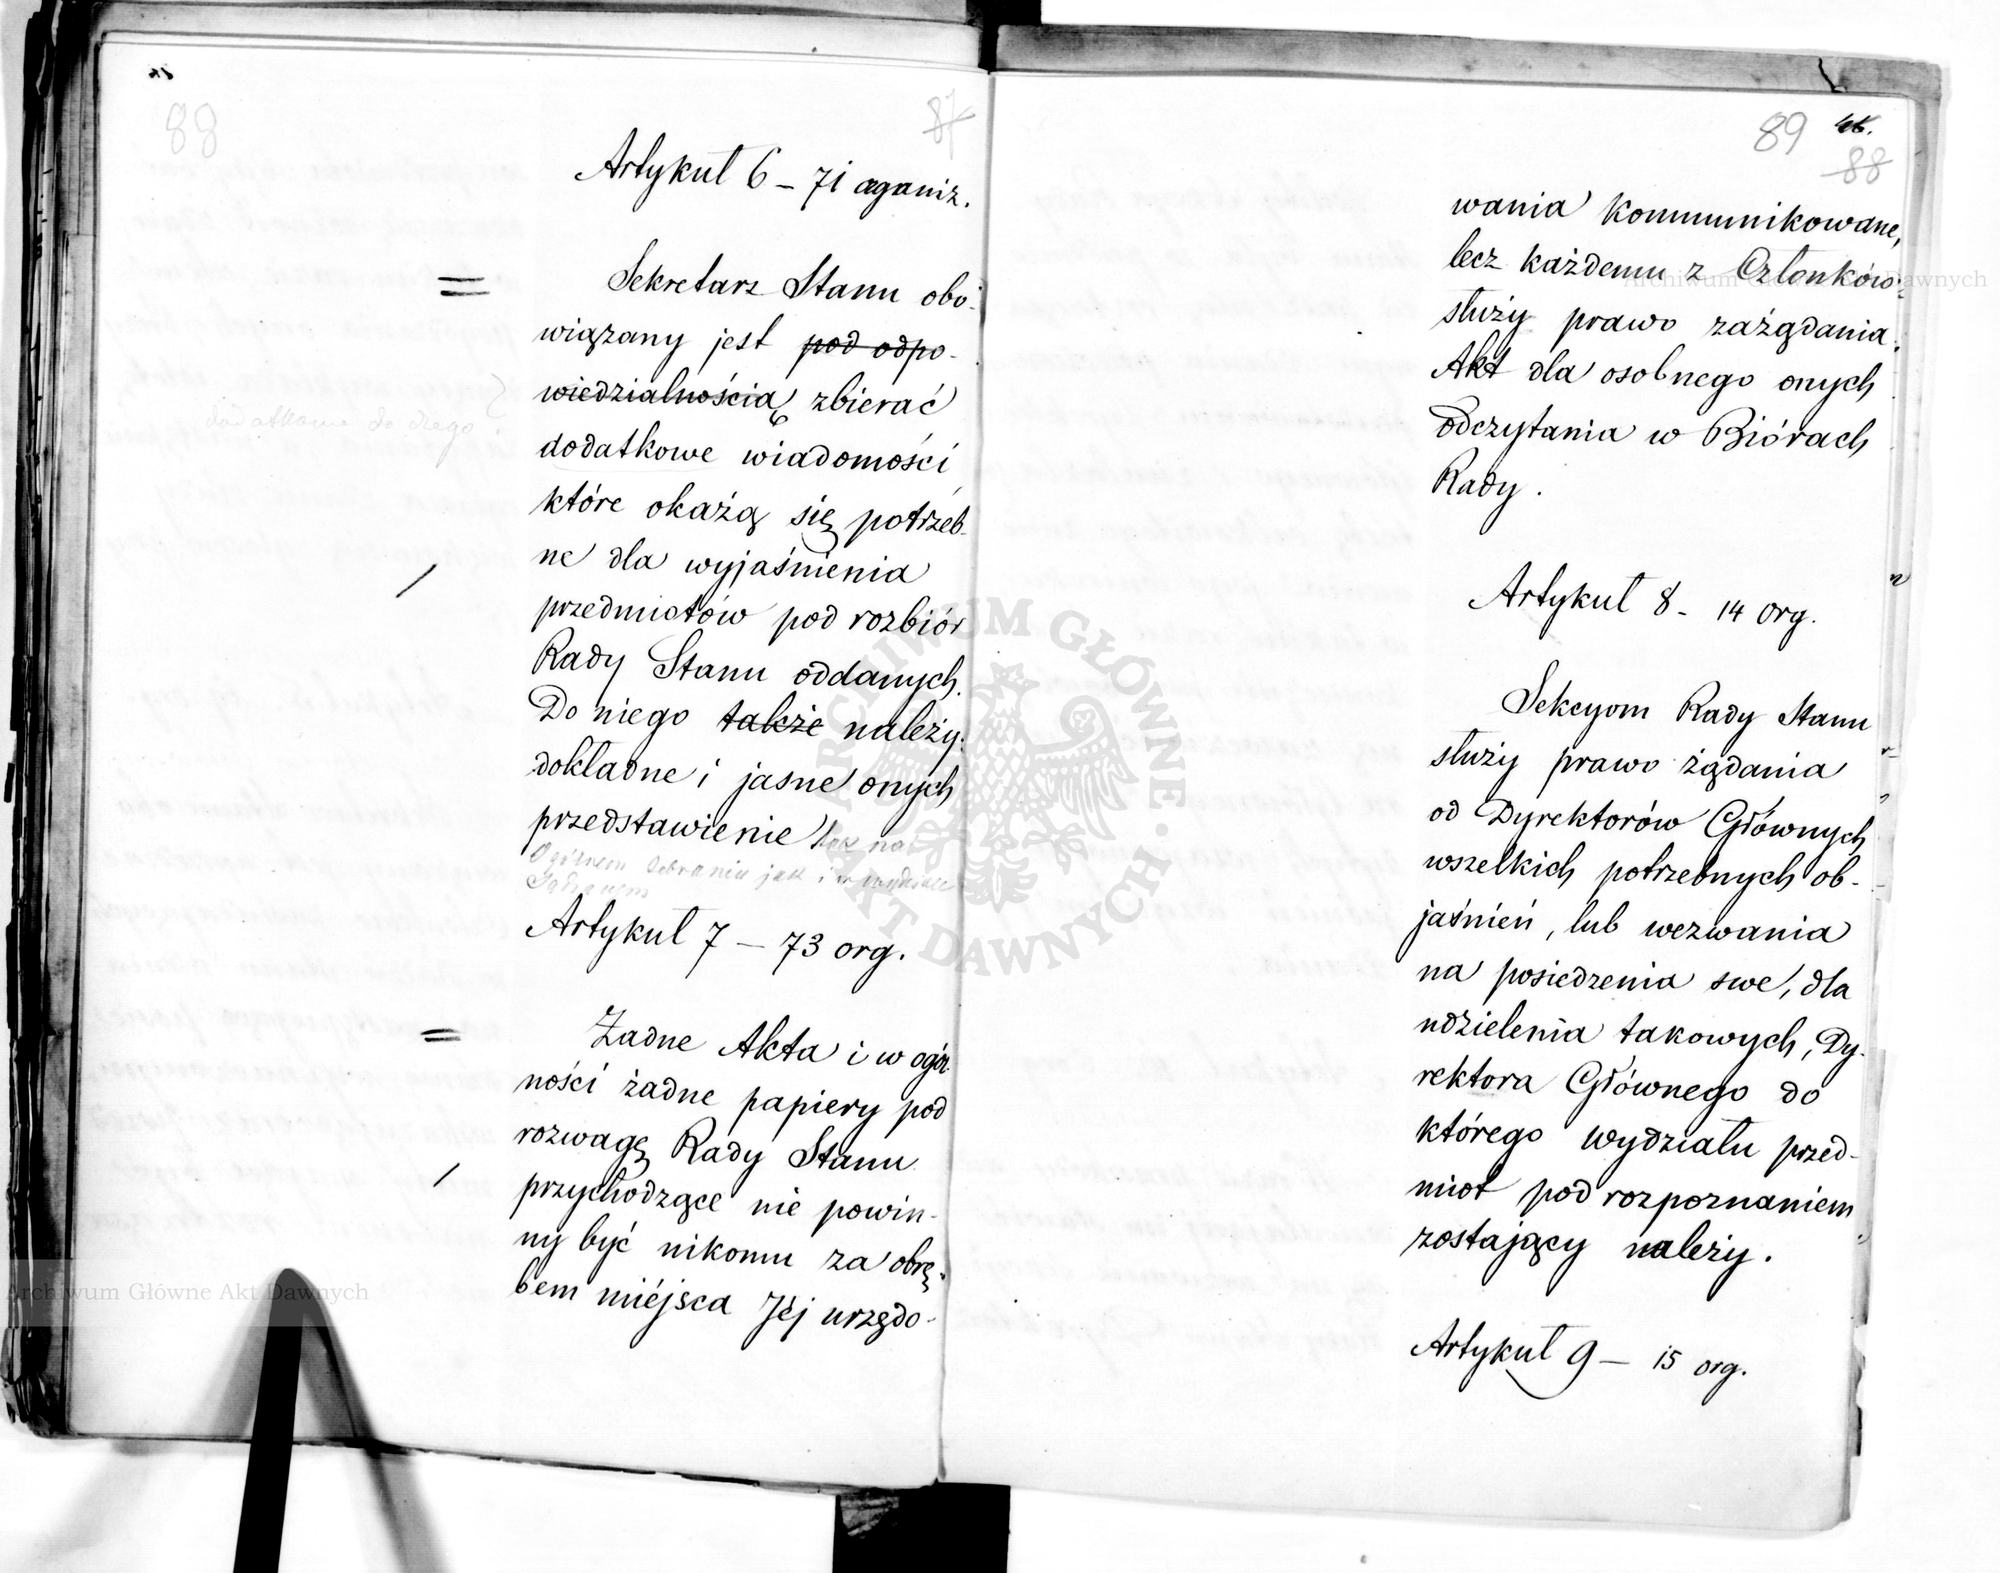 88
87
Artykuł 6 – 71 organiz.
Sekretarz Stanu obo-
wiązany jest pod odpo-
wiedzialnością zbierać
dodatkowe wiadomości,
które okażą się potrzeb-
ne dla wyjaśnienia
przedmiotów pod rozbiór
Rady Stanu oddanych.
Do niego także należy
dokładne i jasne onych
przedstawienie tak na
Ogólnem Zebraniu jak i w wydziale
Artykuł 7 – 73 org.
Żadne Akta i w ogól-
ności żadne papiery pod
rozwagę Rady Stanu
przychodzące nie powin-
ny być nikomu za obrę-
bem miéjsca Jéj urzędo-
dodatkowe do
89
88
wania kommunikowane,
lecz każdemu z Członków
służy prawo zażądania
Akt dla osobnego onych
odczytania w Biórach
Rady.
Artykuł 8 – 14 org.
Sekcyom Rady Stanu
służy prawo żądania
od Dyrektorów Głównych
wszelkich potrzebnych ob-
jaśnień, lub wezwania
na posiedzenia swe, dla
udzielenia takowych, Dy-
rektora Głównego do
którego wydziału przed-
miot pod rozpoznaniem
zostający należy.
Artykuł 9 – 15 org.
ARCHIWUM GŁÓWNE AKT DAWNYCH
Archiwum Główne Akt Dawnych
Archiwum Główne Akt Dawnych